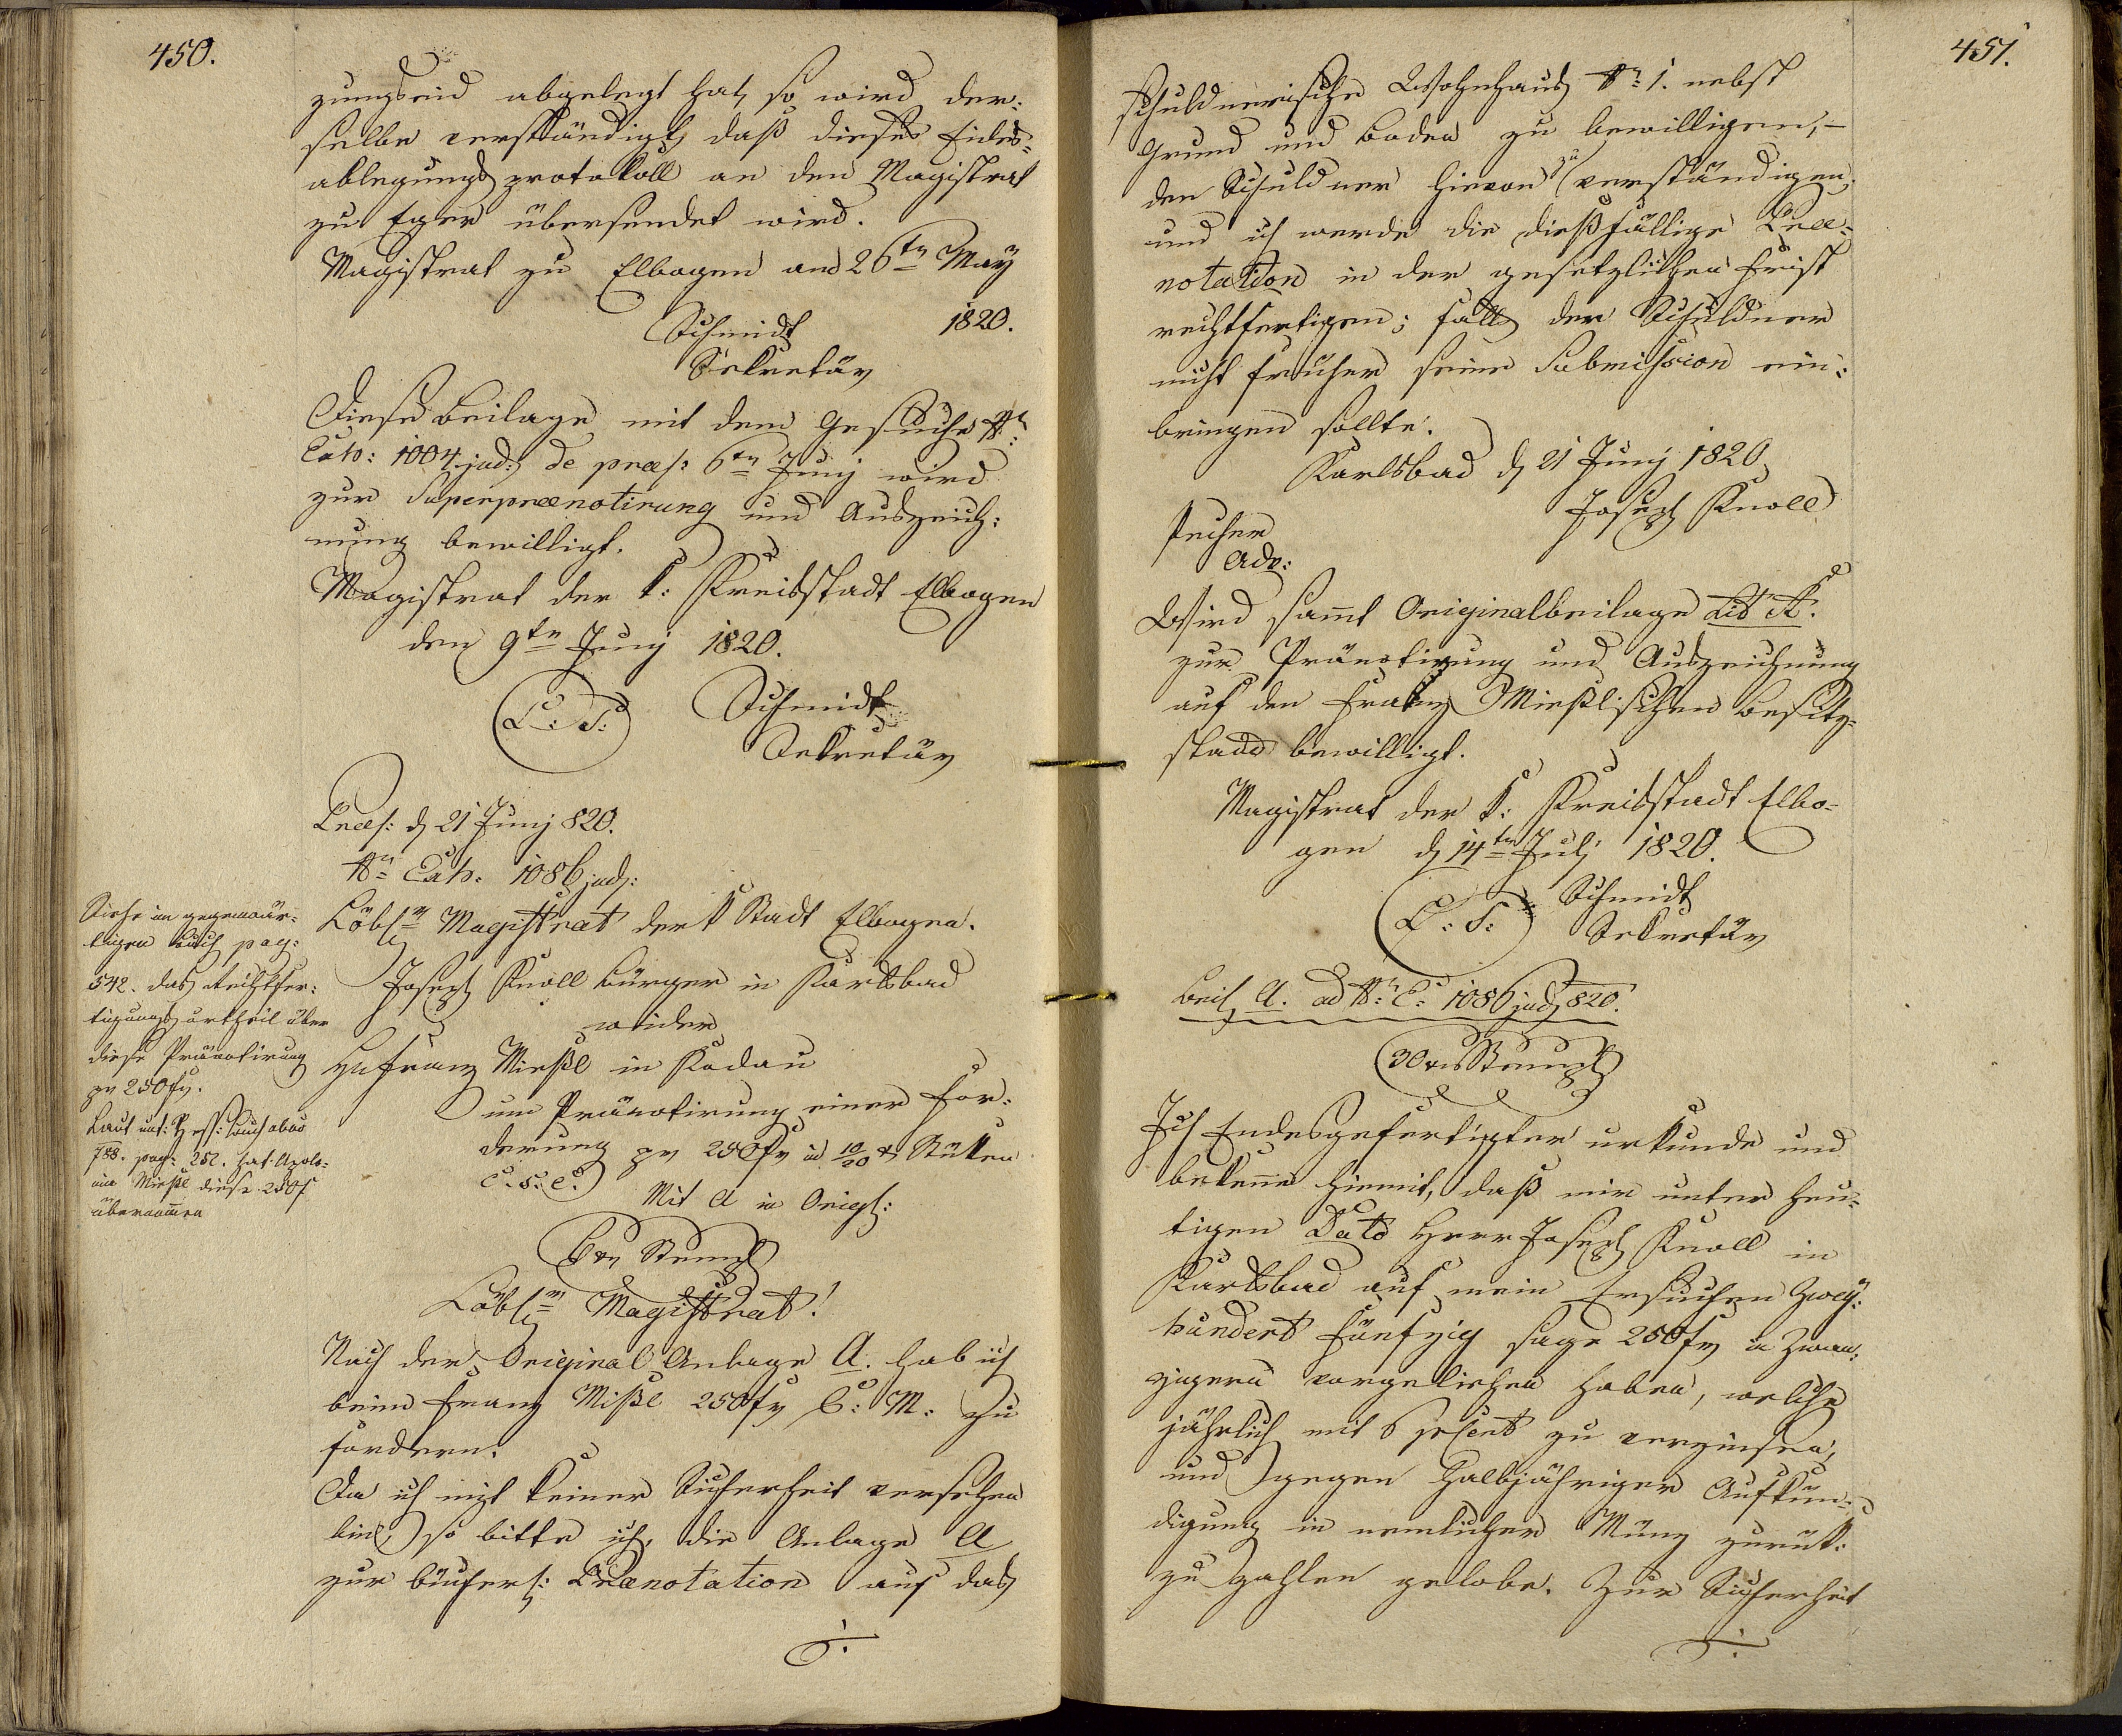 450.
zungseid abgelegt hat, so wird der:
selbe verständigt, daß dieses Eides:
ablegungsprotokoll an den Magistrat
zu Eger übersendet wird.
Magistrat zu Elbogen am 26tn May
1820.
Schmidt
Sekretär
Diese Beilage mit dem Gesuche Nr:
Exh: 1004 jud: de præs: 6tn Junj wird
zur Superprænotirung und Auszeich:
nung bewilligt.
Magistrat der k: Kreisstadt Elbogen
den 9tn Junj 1820.
L: S: Schmidt
Sekretär
Præs: d 21 Junj 820.
Nr Exh: 1086 jud:
Löbl. Magistrat der k Stadt Elbogen.
Joseph Knoll Bürger in Karlsbad
wider
H Franz Mießl in Kodau
um Pränotirung einer For:
derung pr 250 fr in 10/20 xr Stüken
c. s. c.
Mit A in Origl:
6 xr Stempl
Löbl. Magistrat!
Nach der Original Anlage A. hab ich
beim Franz Mißl 250 fr C: M: zu
fordern.
Da ich mit keiner Sicherheit versehen
bin, so bitte ich, die Anlage A
zur bücherl: Prænotation auf das
./.
Siehe im gegenwär:
tigen Buch pag:
542. das Rechtfer:
tigungsurtheil über
diese Pränotirung
pr 250 fr.
Laut
788. pag: 252. hat Apolo:
nia Mießl diese 250 f
übernommen
451.
schuldnerische Wohnhaus Nr: 1. nebst
Grund und Boden zu bewilligen,-
den Schuldner hievon zu verständigen,
und ich werde die dießfällige Præ-
notation in der gesetzlichen Frist
rechtfertigen; falls der Schuldner
nicht früher seine Submission ein:
bringen sollte.
Karlsbad d 21 Junj 1820
Joseph Knoll
Adv:
Wird samt Originalbeilage Lit A.
zur Pränotirung und Auszeichnung
auf den Franz Mießlischen Besitz-
stand bewilligt.
Magistrat der k: Kreisstadt Elbo-
gen d 14tn Julj 1820.
L: S: Schmidt
Sekretär
Beil A. ad Nr: E: 1086 jud 820.
30 xr Stempl
Ich Endesgefertigter urkunde und
bekenne hiemit, daß mir unter heu-
tigen Dato Herr Joseph Knoll in
Karlsbad auf mein Ersuchen Zwey:
hundert Fünfzig sage 250 fr in Zwan:
zigern vorgeliehen haben, welche
jährlich mit 6 prCent zu verzinsen,
und gegen halbjähriger Aufkün-
digung in nemlicher Münz zurük:
zu zahlen gelobe. Zur Sicherheit
./.